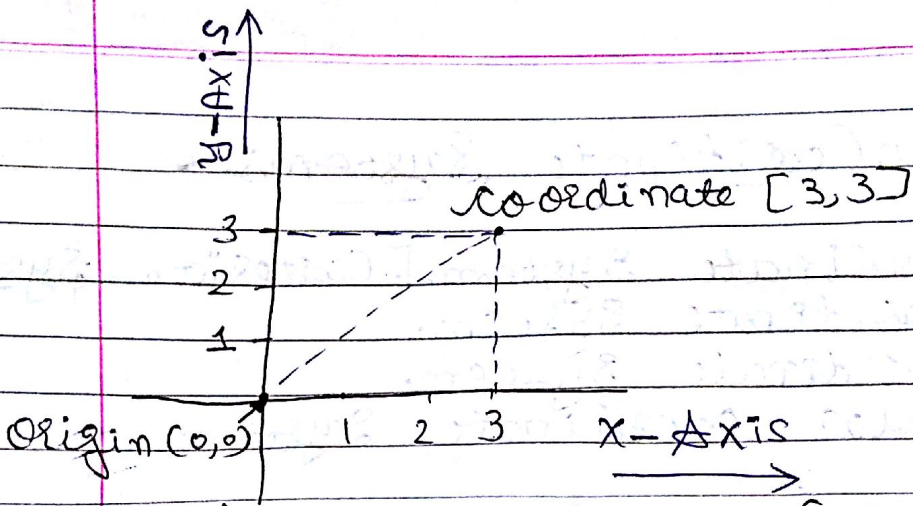 y-Axis
coordinate [3,3]
3
2
1
origin (0,0) 1 2 3 X-Axis